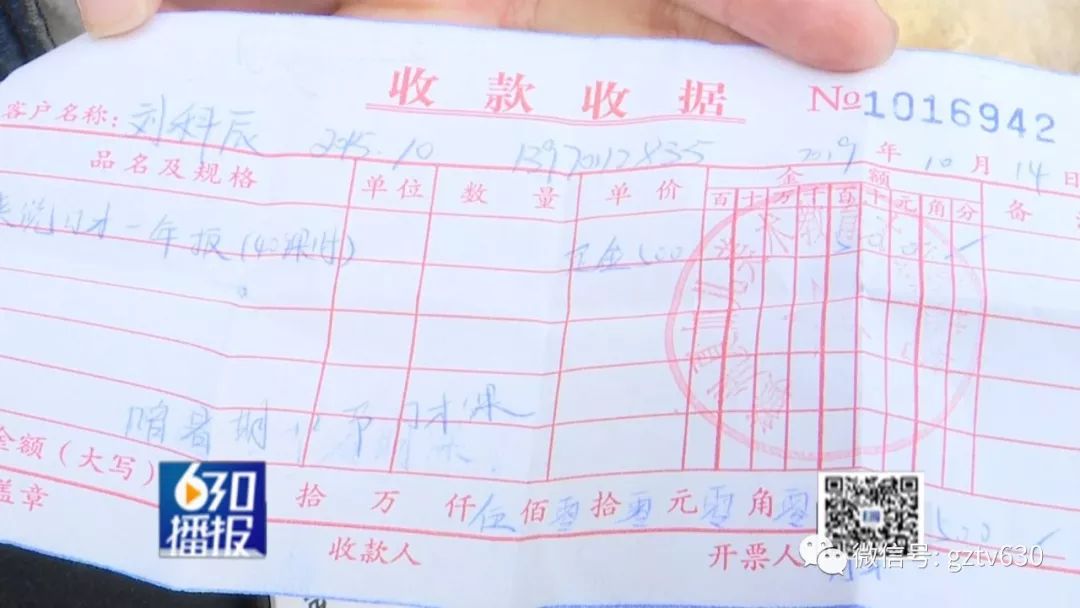 收款收据 No 1016942
客户名称: 刘科辰 2015.10 13970112835 2019年10月14日
品名及规格 单位 数量 单价 金额 备
百十万千百十元角分
口才一年报(40课时) 定金500 500
送暑期 课
金额(大写) 拾 万 仟 伍佰 零拾 零元 零角 零 500
盖章 收款人 开票人
630
播报
微信号: gztv630